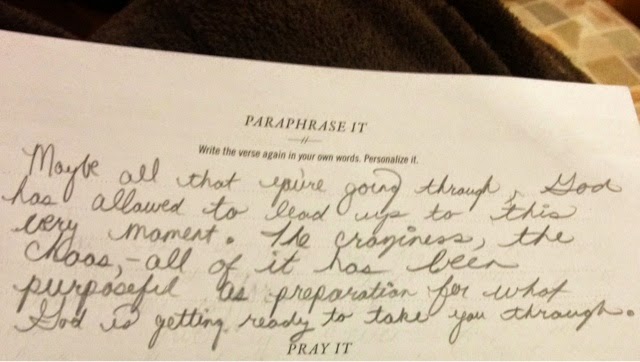 PARAPHRASE IT
Write the verse again in your own words. Personalize it.
Maybe all that you're going through, God
has allowed to lead up to this
very moment. The craziness, the
chaos, - all of it has been
purposeful as preparation for what
God is getting ready to take you through.
PRAY IT